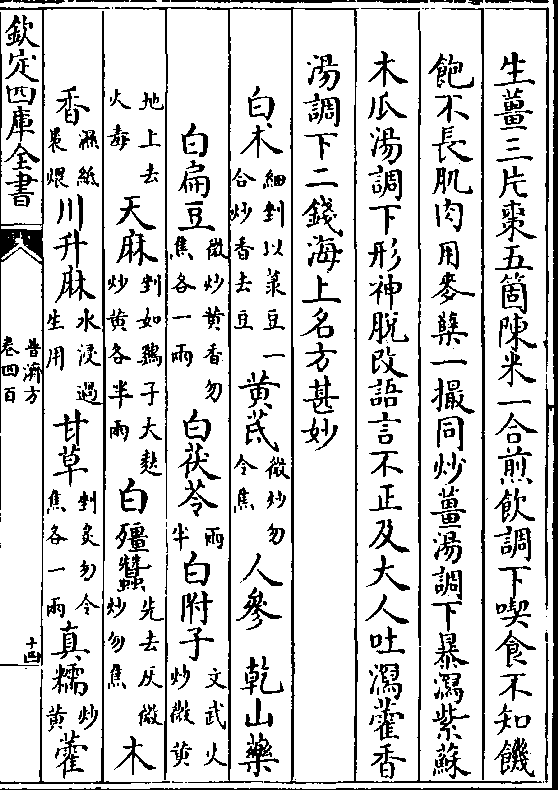 生薑三片棗五箇陳米一合煎飲調下喫食不知饑
飽不長肌肉用麥糵一撮同炒薑湯調下暴瀉紫蘇
木瓜湯調下形神脫改語言不正及大人吐瀉藿香
湯調下二錢海上名方甚妙
白术細剉以菉豆一合炒香去豆 黄芪微炒勿令焦 人參 乾山藥
白扁豆微炒黄香勿焦各一兩 白茯苓兩半 白附子文武火炒微黄
地上去火毒 天麻剉如鷄子大麩炒黄各半兩 白殭蠶先去灰微炒勿焦 木
香濕紙裹煨 川升麻水浸過生用 甘草剉炙勿令焦各一兩 真糯炒黄 藿
欽定四庫全書
普濟方
卷四百
十四